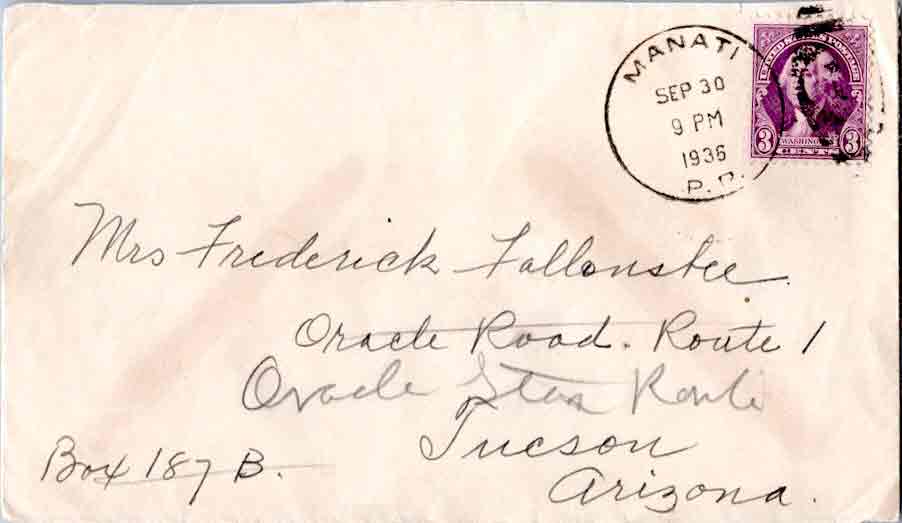 MANATI
SEP 30
9 PM
1936
P.R.
UNITED STATES POSTAGE
3 WASHINGTON 3
Mrs Frederick Fallonsbee
Oracle Road. Route 1
Oracle Star Route
Tucson
Box 187 B.
Arizona.